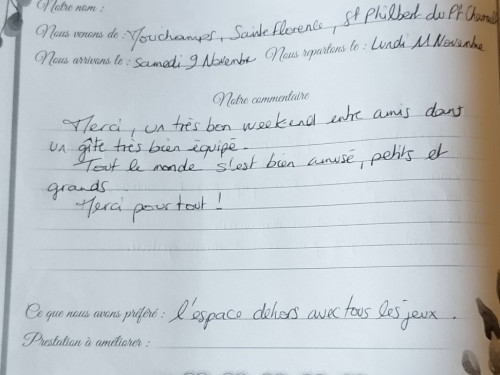 Notre nom :
Nous venons de : Mouchamps, Sainte Florence, St Philbert du Pt Charrault
Nous arrivons le : Samedi 9 Novembre Nous repartons le : Lundi 11 Novembre
Notre commentaire
Merci, un très bon weekend entre amis dans
un gîte très bien équipé.
Tout le monde s'est bien amusé, petits et
grands.
Merci pour tout !
Ce que nous avons préféré : l'espace dehors avec tous les jeux.
Prestation à améliorer :